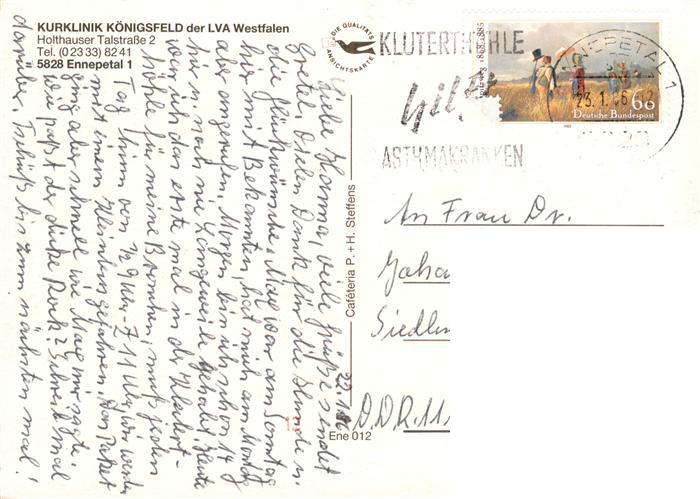 KURKLINIK KÖNIGSFELD der LVA Westfalen
Holthauser Talstraße 2
Tel. (0 23 33) 82 41
5828 Ennepetal 1
22.1.86
Liebe Hanna, viele Grüße sendet
Gretel. Vielen Dank für die Stunde u.
die Glückwünsche. Max war am Sonntag
hier mit Bekannten, hat mich am Montag
aber angerufen. Morgen bin ich schon 14 Tg
hier u. noch nie Langeweile gehabt. Heute
war ich das erste mal in der Klutert-
höhle für meine Bronchien, muß jeden
Tag hin von ½ 9 Uhr - 11 Uhr, wir werden
mit einem Kleinbus gefahren. Das Paket
ging aber schnell wie Max mir sagte.
Wie paßt der dicke Rock? Schreib mal
darüber. Tschüß bis zum nächsten mal!
DIE QUALITÄTS
ANSICHTSKARTE
Caféteria P. + H. Steffens
12
Ene 012
KLUTERTHÖHLE
hilft
ASTHMAKRANKEN
ENNEPETAL 1
23.1.86
1885
60
Deutsche Bundespost
An Frau Dr.
Joha
Siedlu
DDR 11